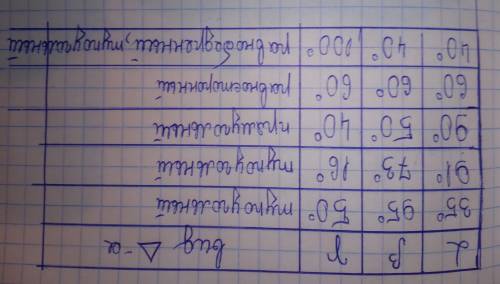 α β γ вид △-а
35° 95° 50° тупоугольный
91° 73° 16° тупоугольный
90° 50° 40° прямоугольный
60° 60° 60° равносторонный
40° 40° 100° равнобедренный, тупоугольный